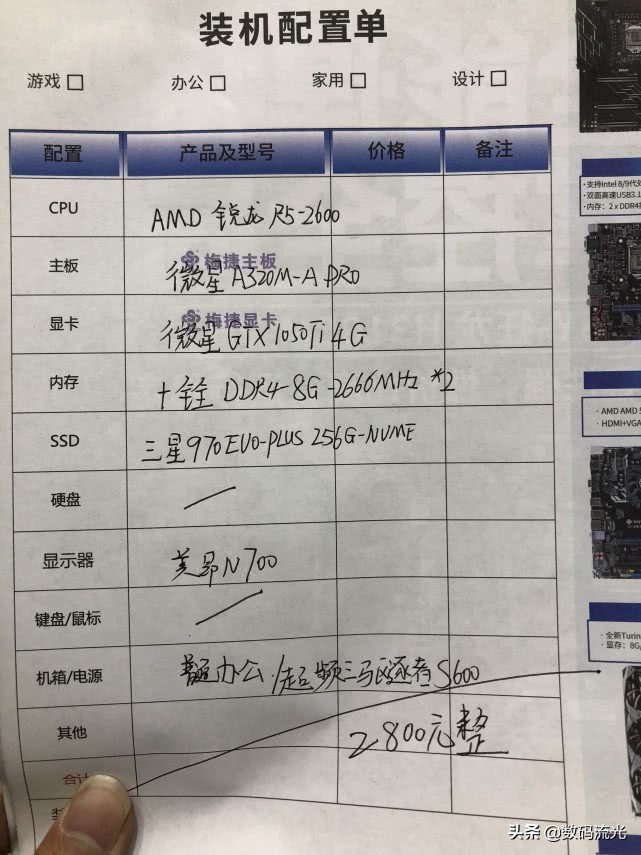 装机配置单
游戏 办公 家用 设计
配置 产品及型号 价格 备注
CPU AMD 锐龙 R5-2600
梅捷主板
主板 微星 A320M-A PRO
梅捷显卡
显卡 微星 GTX 1050Ti 4G
内存 十铨 DDR4-8G-2666MHz *2
SSD 三星970EVO-PLUS 256G-NVME
硬盘
显示器 美昂N700
键盘/鼠标
机箱/电源 办公/超频三 S600
其他 2800元整
合计
·支持Intel 8/9代
·双面高速USB3.1
·内存：2 x DDR4
· AMD AMD
· HDMI+VGA
· 全新Turin
· 显存：8G
头条 @数码流光